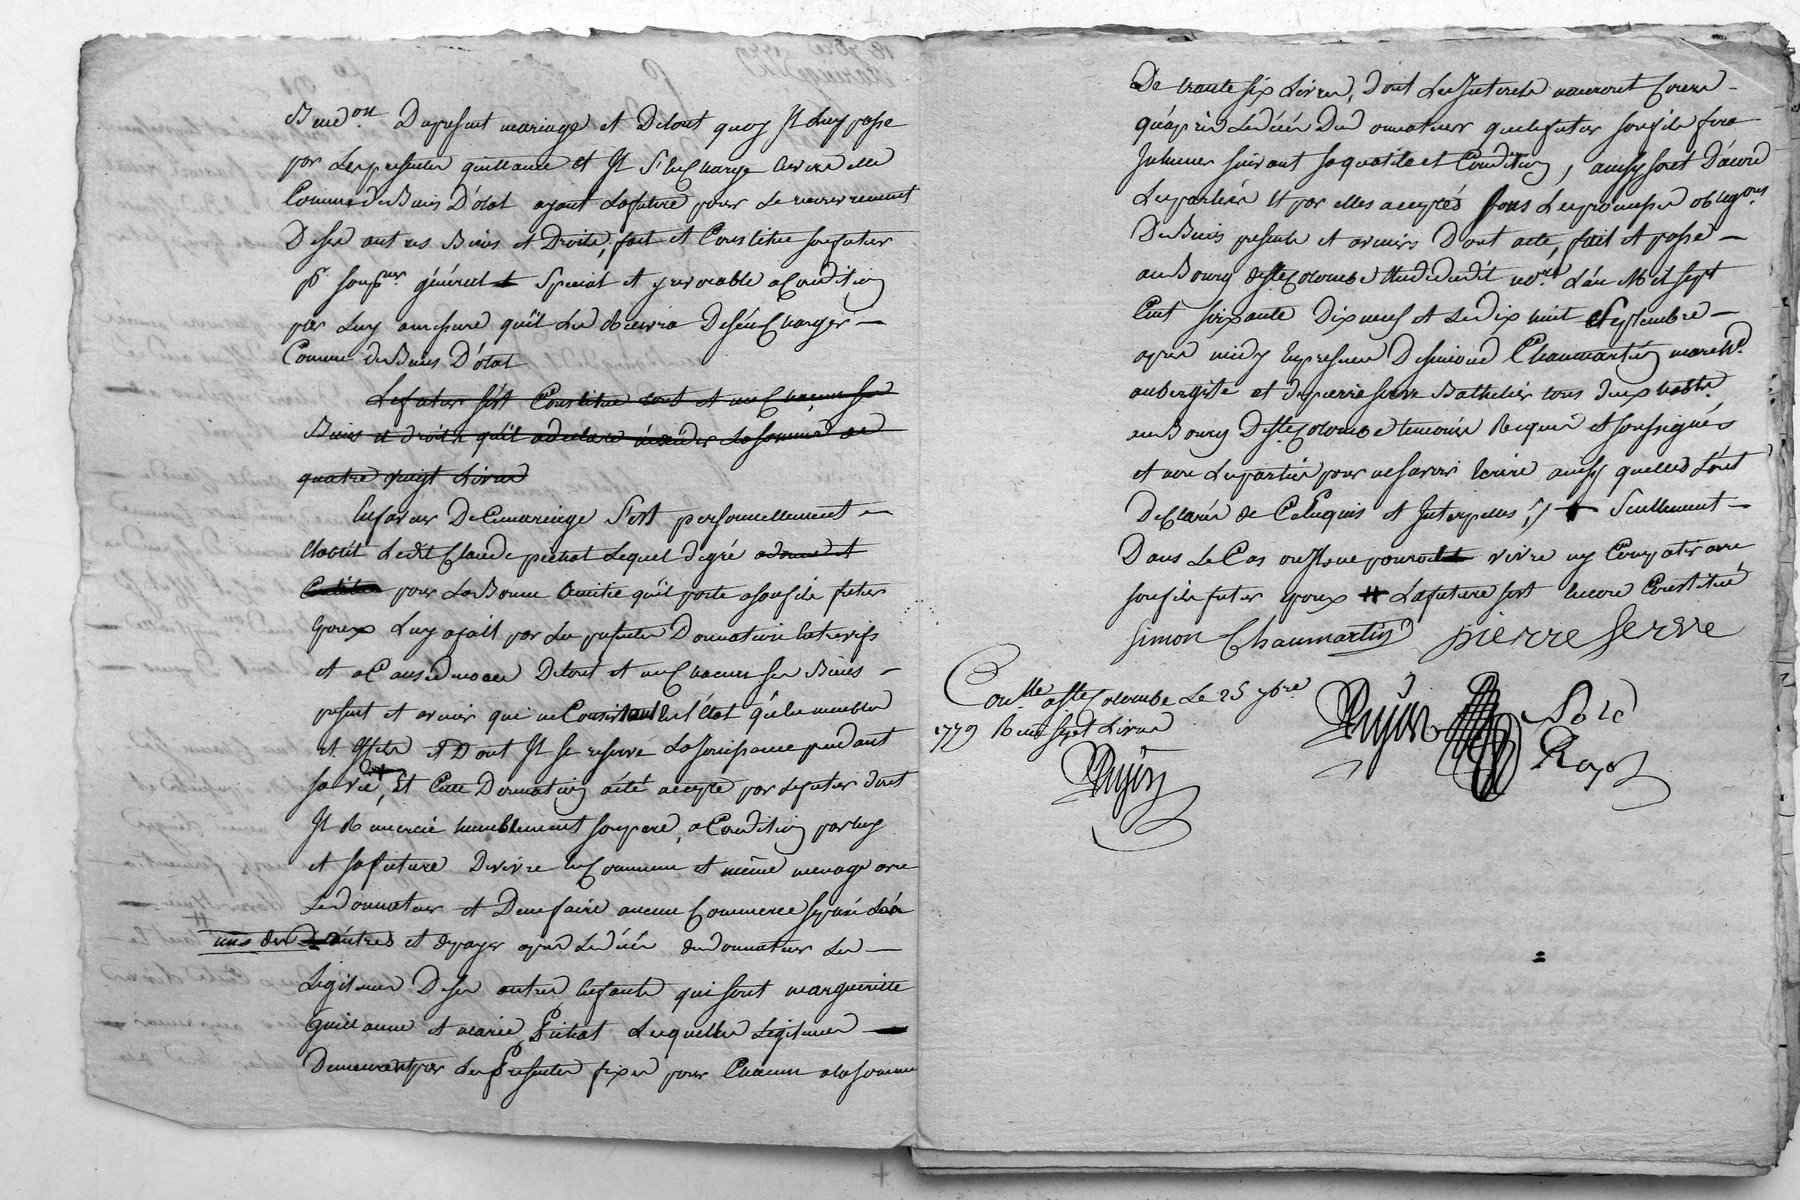 Bened.on Dupresent mariage et Detout quoy Il Luy passe
par Lespresentes quittance et Il S'enCharge envers elle
Comme deBiens D'otal ayant Lafuture pour Le recouvrement
Deses autres Biens et Droits, fait et Constitue sonfutur
pr. sonpr.ur général et Spécial et yrevocable aCondition
par Luy amesure qu'il Les Recevra Des'enCharger —
Comme deBiens D'otal
Lefutur s'est Constitue tout et unChacuns ses
Biens et droits qu'il adeclaré éxcéder La somme de
quatre vingt Livres
Enfaveur DeCemariage S'est personnellement —
Etablit Ledit Claude pichat Lequel degré adonné et
pour LaBonne Amitie qu'il porte asonfils futur
Epoux Luy afait par Les presentes Donnation Entrevifs
et aCausedemort Detout et unChacuns ses Biens —
present et avenir qui neConsistent En l'état qu'En meubles
et Effets Dont Il se reserve La Jouissance pendant
sa vie, Et Cette Donnation àété accepté par Lefutur dont
Il Remercié humblement sonpere, aCondition par luy
et safuture Devivre EnCommun et même menage avec
Ledonnateur et Denefaire aucun Commerce separé Les
uns des autres et depayer apres Ledécés dudonnateur Les —
Legitimes Deses autres Enfants qui sont margueritte
Guillaume et marie Pichat Lesquelles Legitimes —
Demeurent par Les Presentes fixés pour Chacun alasomme
De trante six Livres, Dont Les Interets nauront Cours —
qu'après Ledécés Du Donnateur quelefutur sonfils fera
Inhumer suivant saqualité et Condition, ainsy sont D'acord
Lesparties et par elles acceptés sous Lespromesses obligons
DeBiens presents et avenirs Dont acte, fait et passé —
au Bourg deste Colombe Etude dudit no.re L'an Mil sept
Cent soixante Dix neuf et Le dix huit Septembre —
apres midy Enpresence Desimond Chaumartin march.d
aubergiste et depierre serve Batelier tous deux habts.
au Bourg Deste Colombe temoins Requis et soussignés
et non Lesparties pour nesavoir Ecrire ainsy quelles L'ont
Declaré de CeEnquis et Interpellés, // Seullement —
Dans LeCas ou Ilsne pouroient vivre en Compatir avec
sonfils futur epoux # Lafuture s'est Encore Constitué
Simon Chaumartin pierre serve
Con.lle aste Colombe Le 25 7bre
1779 Reçu sept Livres